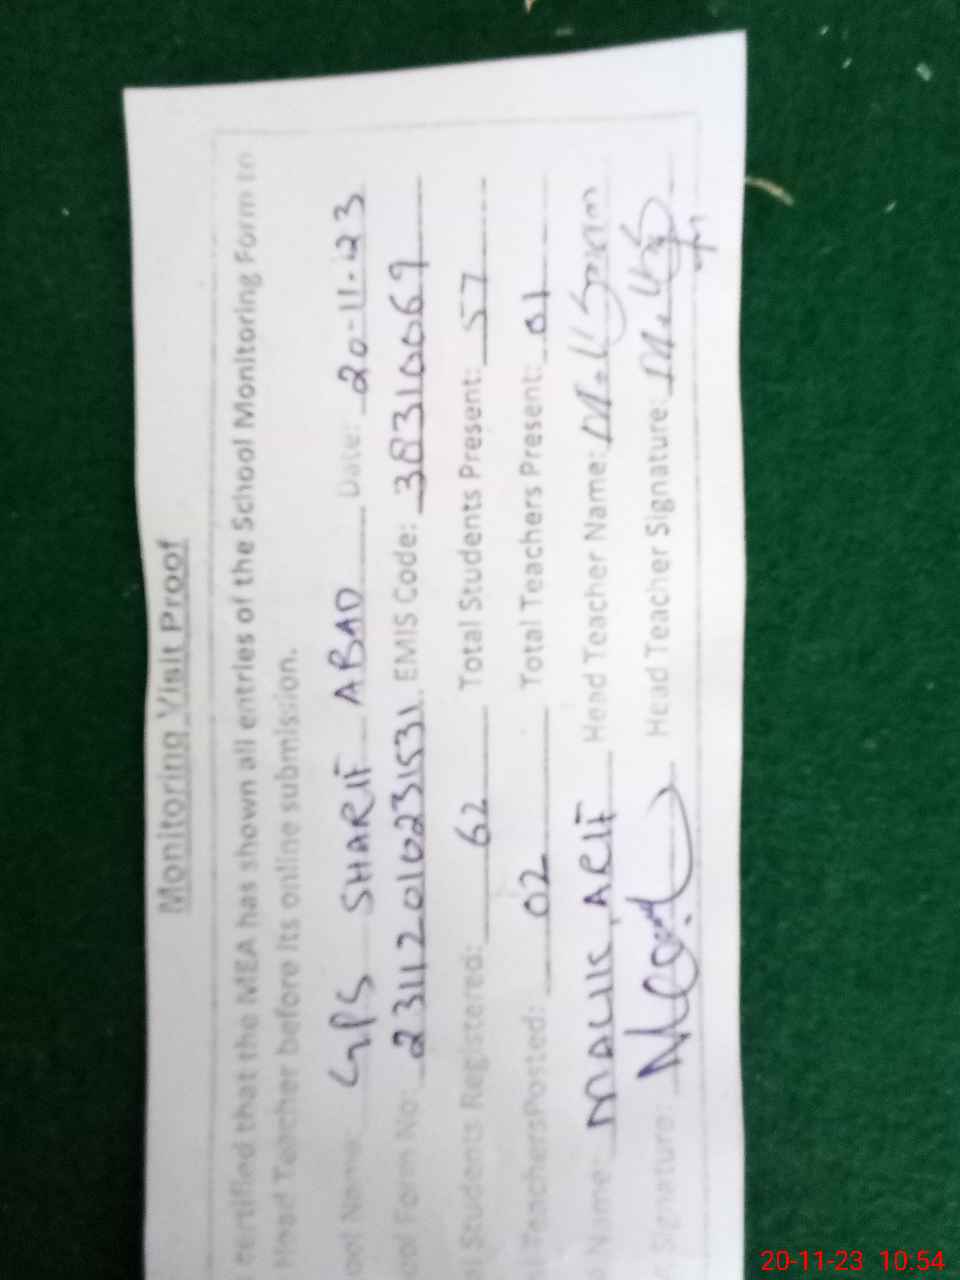 Monitoring Visit Proof
ertified that the MEA has shown all entries of the School Monitoring Form to
Head Teacher before its online submission.
ool Name: GPS SHARIF ABAD Date: 20-11-23
ol Form No: 2311201010231531 EMIS Code: 38310069
l Students Registered: 62 Total Students Present: 57
l TeachersPosted: 02 Total Teachers Present: 01
Name: MALIK ARIF Head Teacher Name:
Signature: Head Teacher Signature:
20-11-23 10:54